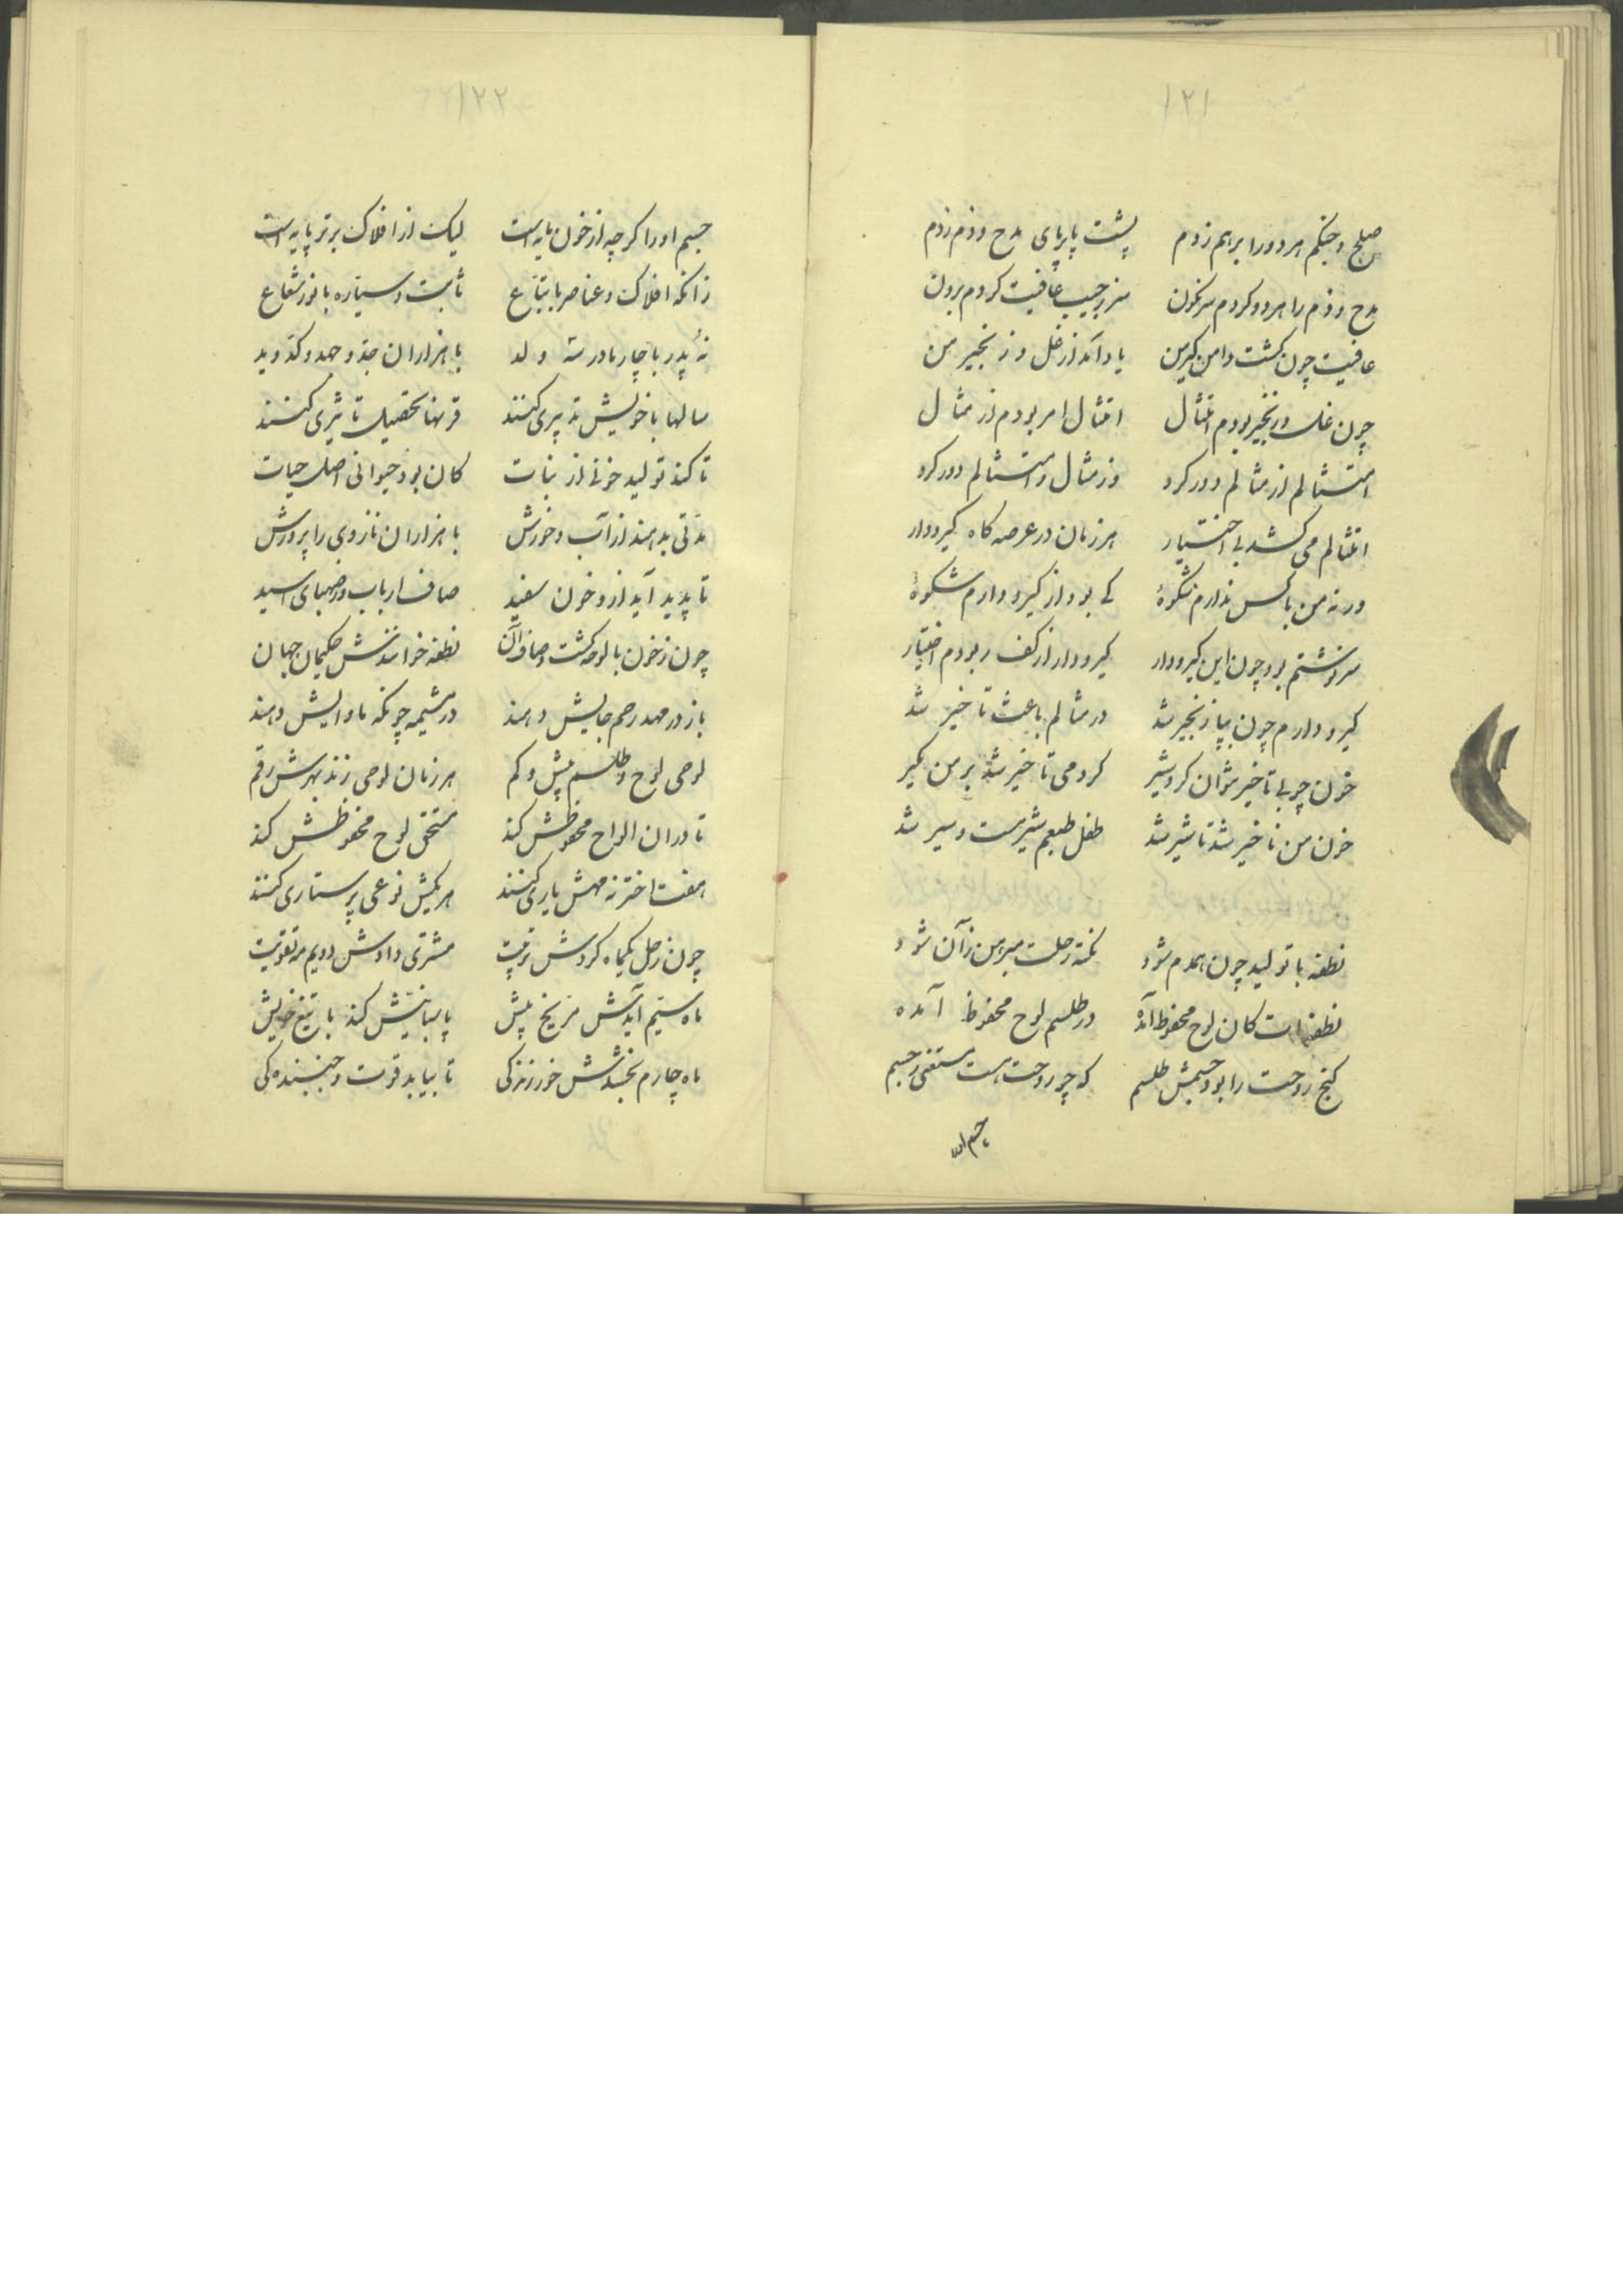 ۱۲۱
صلح و جنگم هر دو را بر هم زدم پشت پا بر پای مدح و ذم زدم
مدح و ذم را هر دو کردم سرنگون سر ز جیب عافیت کردم برون
عافیت چون گشت دامن گیر من یاد آمد از غل و زنجیر من
چون غل و زنجیر بودم امتثال امتثال امر بودم از مثال
امتثالم از مثالم دور کرد وز مثال و امتثالم دور کرد
امتثالم می کشد بی اختیار هر زمان در عرصه کاه کیرودار
ور نه من با کس ندارم شکوهٔ کی بود از کیرو دارم شکوهٔ
سرنوشتم بود چون این کیرودار کیرودار از کف ربودم اختیار
کیرو دارم چون بپا زنجیر شد در مثالم باعث تاخیر شد
خون چو بی تاخیر نتوان کرد شیر کردمی تاخیر شد بر من مکیر
خون من تاخیر شد تا شیر شد طفل طبعم شیر مست و سیر شد
نطفه با تولید چون همدم شود نکته رحلت مبرهن زآن شود
نطفه ات کان لوح محفوظ آمده در طلسم لوح محفوظ آمده
کنج روحت را بود جسمش طلسم که چو روحت هست مستغنی ز جسم
جسم او را
۱۲۲
جسم او را کر چه از خون مایه است لیک از افلاک برتر پایه است
زانکه افلاک و عناصر با تباع ثابت و سیاره با نور شعاع
نُه پدر با چار مادر سه ولد با هزاران جد و جهد و کد و ید
سالها با خویش تدبیری کنند قرنها تحصیل تاثیری کنند
تا کند تولید خونی از نبات کان بود حیوانی اصل حیات
مدتی بدهند از آب و خورش با هزاران ناز وی را پرورش
تا پدید آید از و خون سفید صاف ارباب و رصهبای اسید
چون ز خون پالوده گشت و صاف آن نطفه خوانندش حکیمان جهان
باز در مهد رحم جایش دهند در مشیمه چونکه ماوایش دهند
لوحی لوح و طلسم بیش و کم هر زمان لوحی زند بهرش رقم
تا در ان الواح محفوظش کند مستحق لوح محفوظش کند
هفت اختر نه مهش یاری کنند هر یکیش نوعی پرستاری کنند
چون زحل یکماه کردش تربیت مشتری دادش دویم مه تقویت
ماه سیّم آیدش مریخ پیش پاسبانیش کند با تیغ خویش
ماه چارم بخشدش خور زندکی تا بیابد قوت و جنبندکی